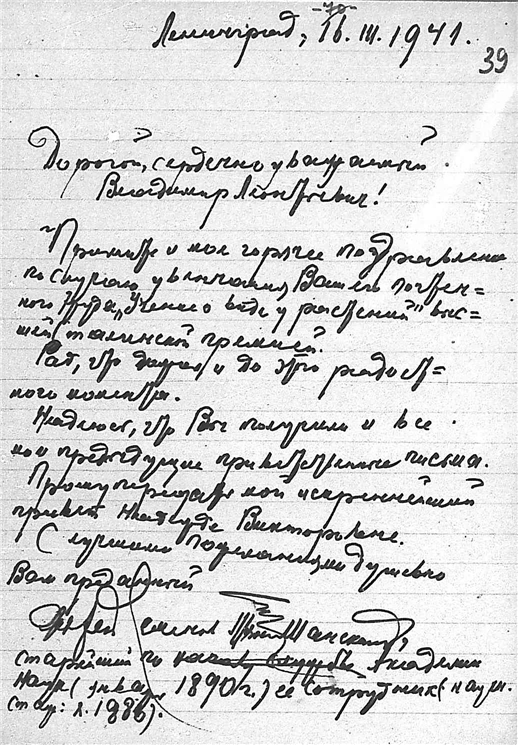 -70-
Ленинград, 16.III.1941.
39
Дорогой, сердечно уважаемый
Владимир Леонтьевич!
Примите и мое горячее поздравление
по случаю увенчания Вашего почтен=
ного труда „Учение о виде у растений" выс=
шей сталинской премией.
Рад, что дожил и до этого радост=
ного момента.
Надеюсь, что Вы получили и все
мои предыдущие приветственные письма.
Прошу передать мой искреннейший
привет Надежде Викторовне.
С лучшими пожеланиями душевно
Вам преданный
Андрей Семенов Тян-Шанский,
старейший по Академии
Наук (январь 1890 г.) ее сотрудник (научн.
стаж: с 1986).